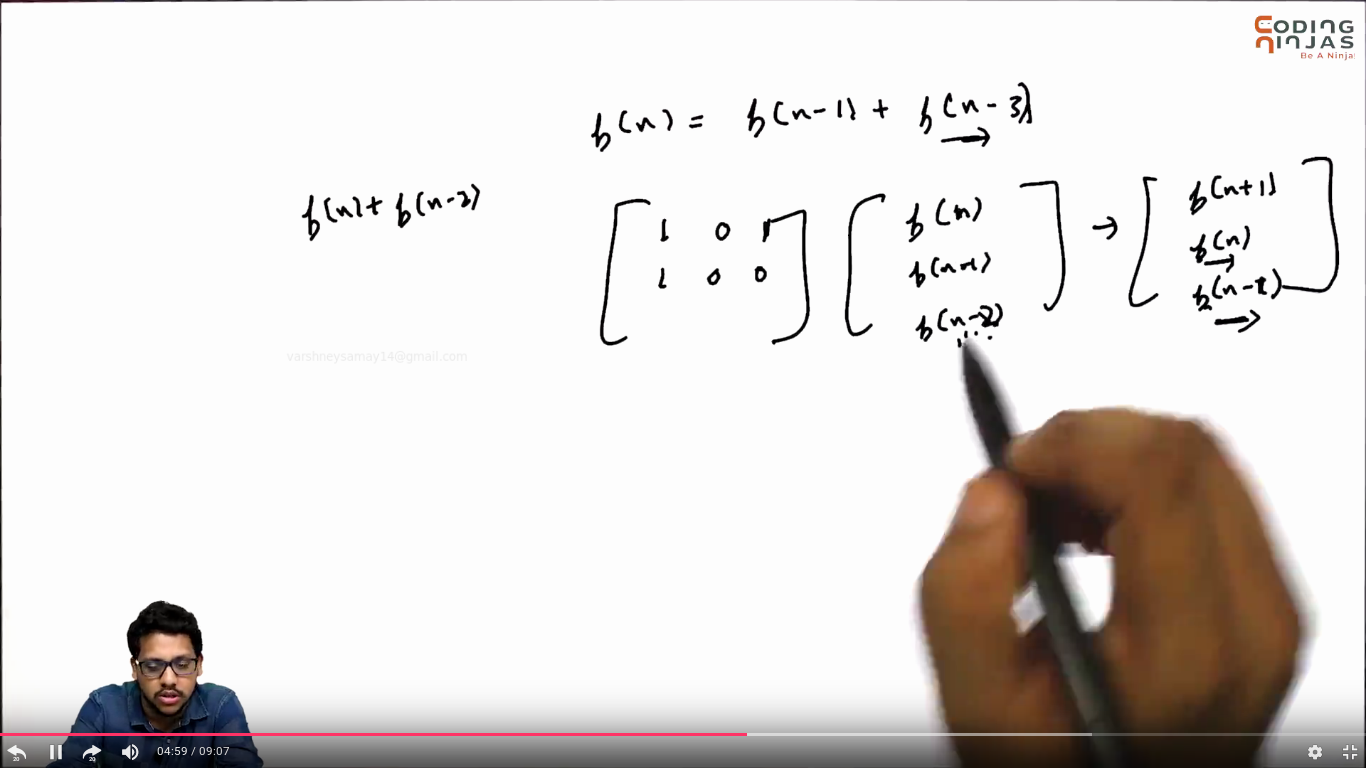 CODING
NINJAS
Be A Ninja!
f(n) = f(n-1) + f(n-3)
f(n) + f(n-2)
[ 1 0 1 ] [ f(n) ] → [ f(n+1) ]
[ 1 0 0 ] [ f(n-1) ] [ f(n) ]
[ f(n-2) ] [ f(n-1) ]
varshneysamay14@gmail.com
04:59 / 09:07
20
20